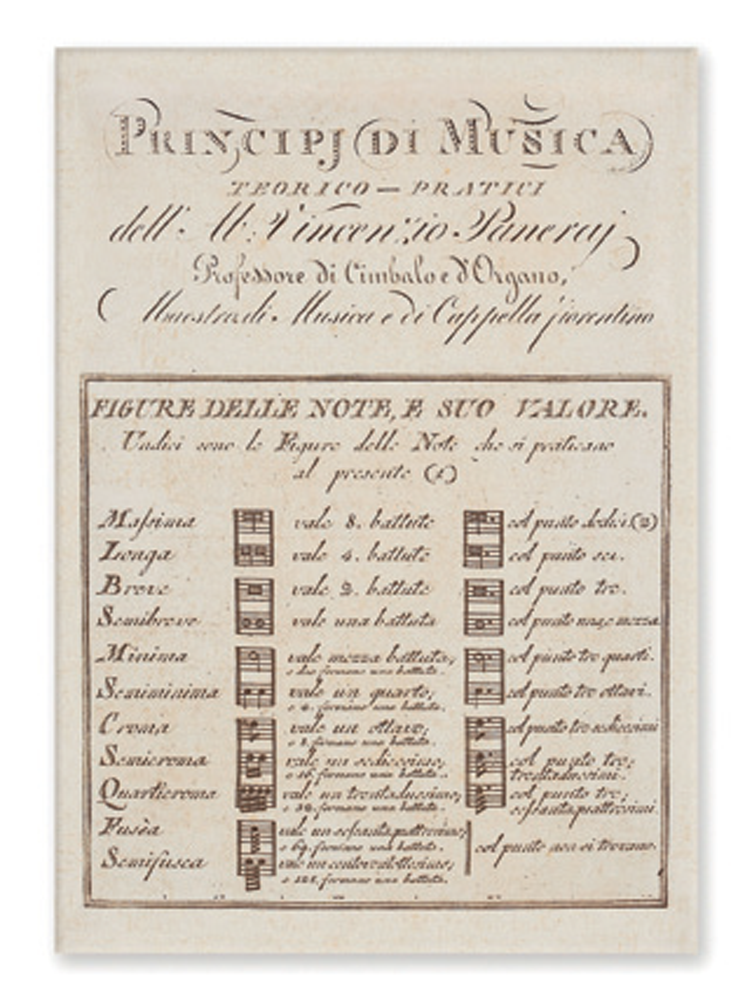 PRINCIPJ DI MUSICA
TEORICO — PRATICI
dell' Ab: Vincenzio Paneraj
Professore di Cimbalo e d'Organo,
Maestro di Musica e di Cappella fiorentino
FIGURE DELLE NOTE, E SUO VALORE.
Undici sono le Figure delle Note che si praticano
al presente (1)
Massima vale 8. battute col punto dodici (2)
Longa vale 4. battute col punto sei.
Breve vale 2. battute col punto tre.
Semibreve vale una battuta col punto una, e mezza
Minima vale mezza battuta, col punto tre quarti.
e due formano una battuta.
Semiminima vale un quarto, col punto tre ottavi.
e 4. formano una battuta.
Croma vale un ottavo, col punto tre sedicesimi
e 8. formano una battuta.
Semicroma vale un sedicesimo, col punto tre;
e 16. formano una battuta. trentaduesimi.
Quarticroma vale un trentaduesimo, col punto tre;
e 32. formano una battuta. sessantaquattresimi.
Fusèa vale un sessantaquattresimo,
e 64. formano una battuta. col punto non si trovano.
Semifusea vale un centoventottesimo,
e 128. formano una battuta.